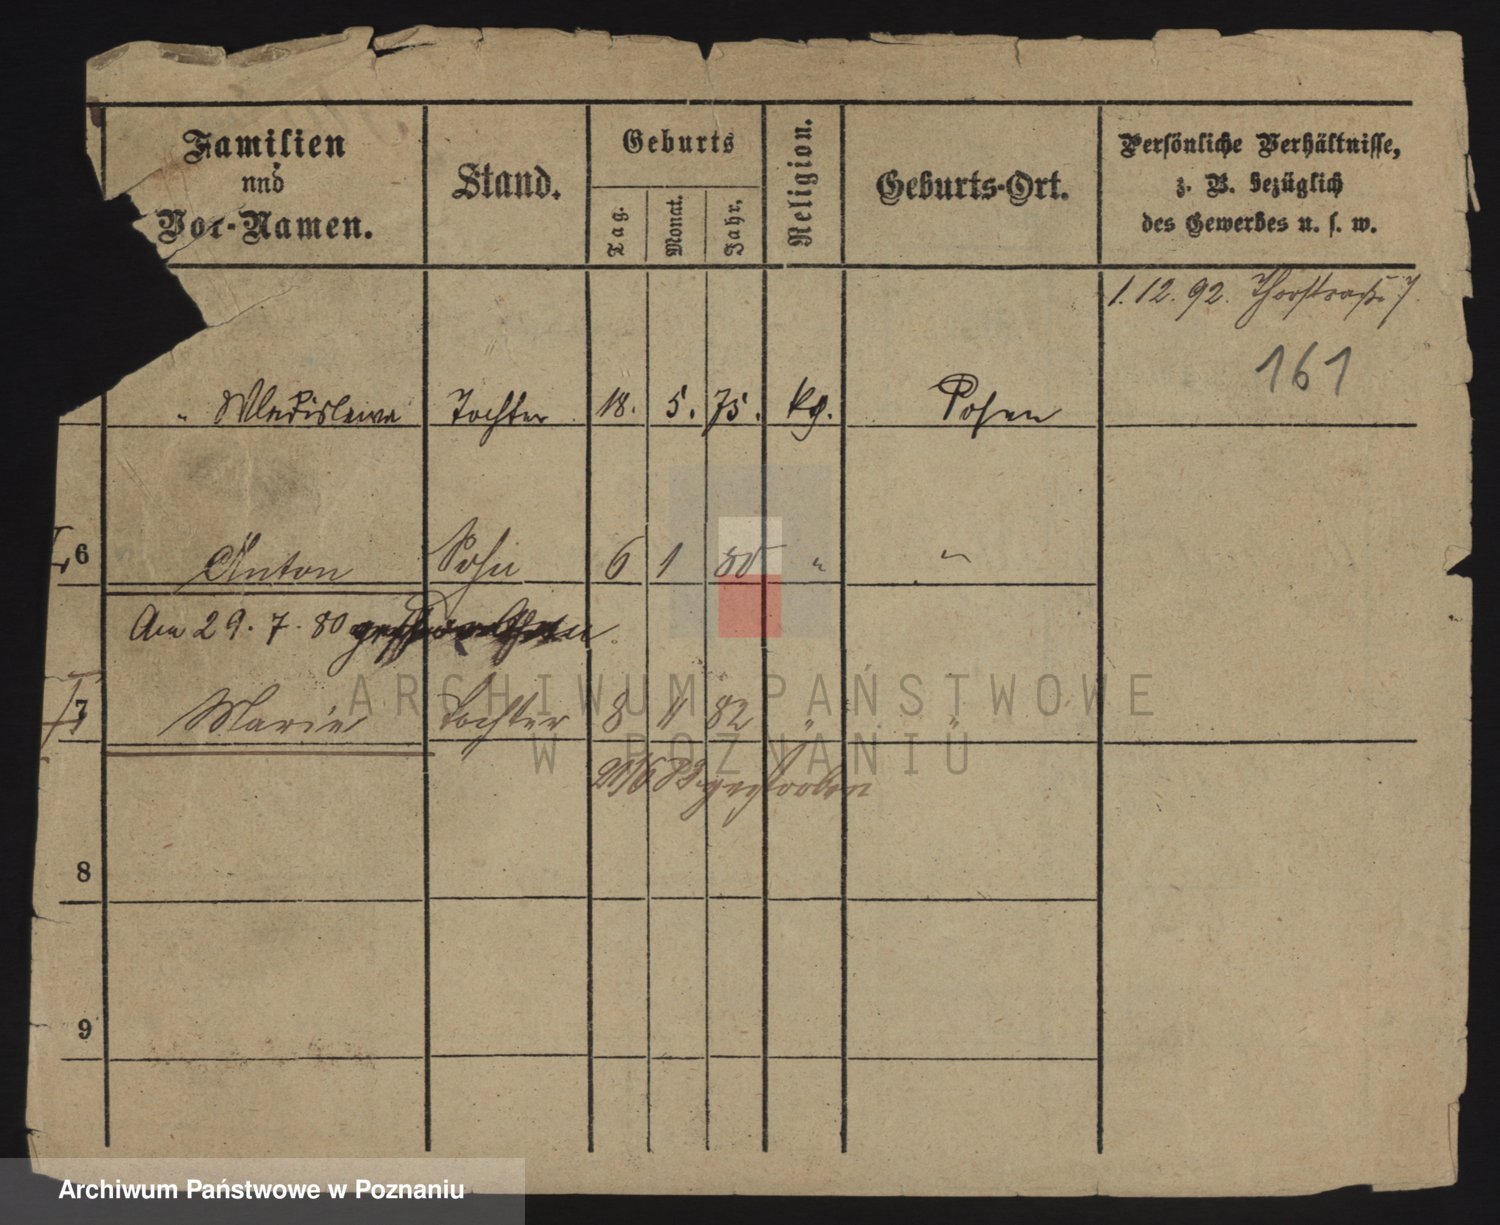 Familien
und
Vor-Namen.
Stand.
Geburts
Tag.
Monat.
Jahr.
Religion.
Geburts-Ort.
Persönliche Verhältnisse,
z. B. bezüglich
des Gewerbes u. s. w.
1. 12. 92. Thorstraße 7.
161
" Wladislawa Tochter 18. 5. 75. kg. Posen
6 Anton Sohn 6 1 80 " "
Am 29. 7. 80
7 Marie Tochter 8 11 82 " "
83 gestorben
8
9
ARCHIWUM PAŃSTWOWE
W POZNANIU
Archiwum Państwowe w Poznaniu